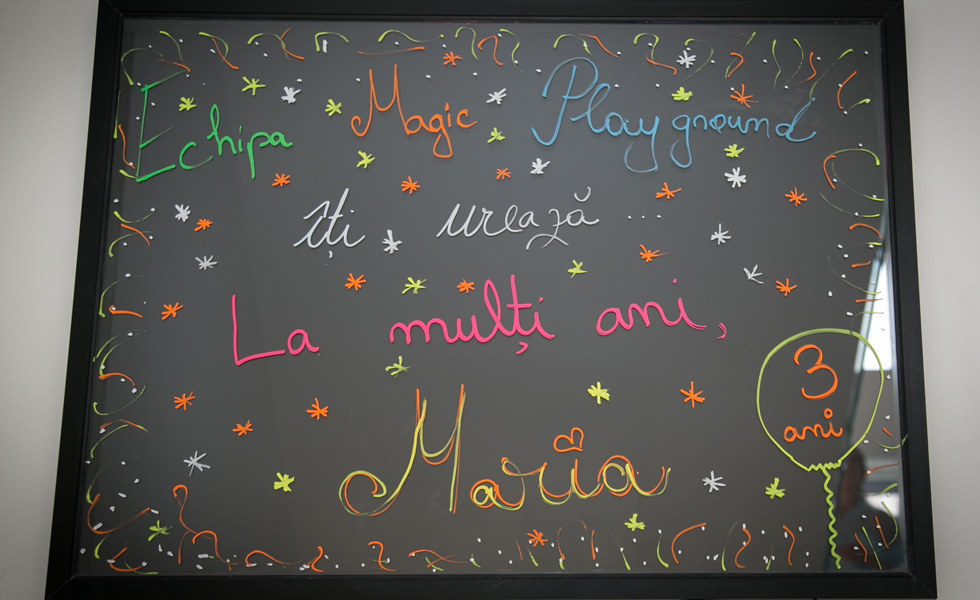 Echipa Magic Playground
îți urează ....
La mulți ani,
Maria
3
ani